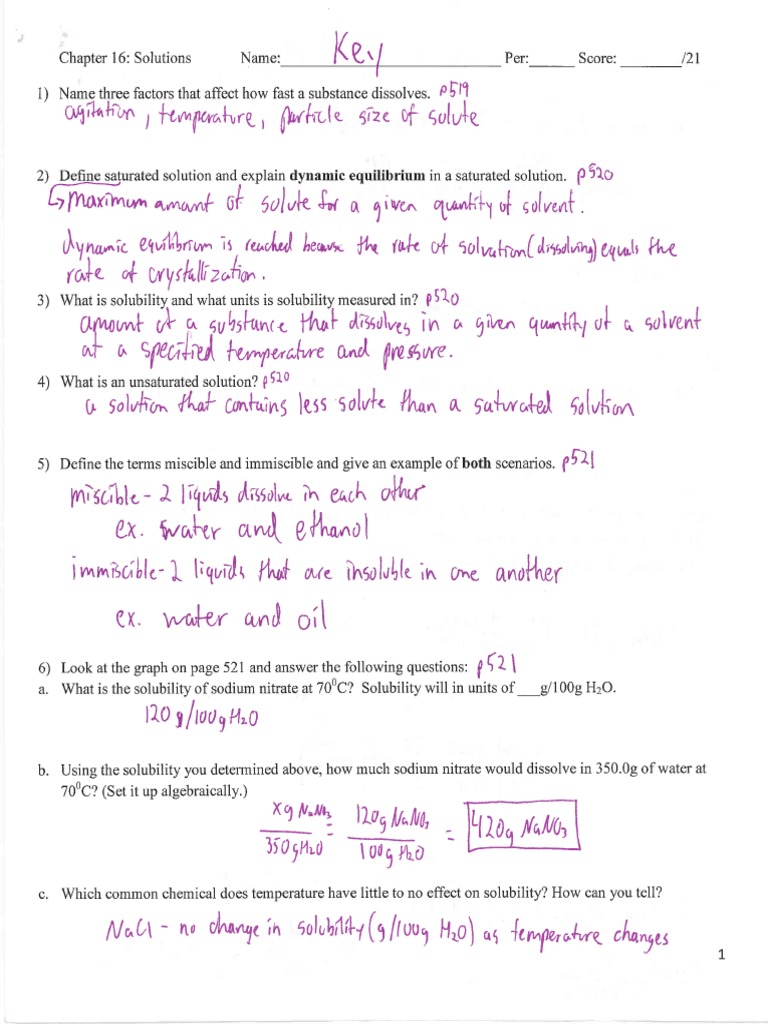 Chapter 16: Solutions Name: Key Per: Score: /21
1) Name three factors that affect how fast a substance dissolves. p519
agitation, temperature, particle size of solute
2) Define saturated solution and explain dynamic equilibrium in a saturated solution. p520
↳ maximum amount of solute for a given quantity of solvent.
dynamic equilibrium is reached because the rate of solvation (dissolving) equals the
rate of crystallization.
3) What is solubility and what units is solubility measured in? p520
amount of a substance that dissolves in a given quantity of a solvent
at a specified temperature and pressure.
4) What is an unsaturated solution? p520
a solution that contains less solute than a saturated solution
5) Define the terms miscible and immiscible and give an example of both scenarios. p521
miscible - 2 liquids dissolve in each other
ex. water and ethanol
immiscible - 2 liquids that are insoluble in one another
ex. water and oil
6) Look at the graph on page 521 and answer the following questions: p521
a. What is the solubility of sodium nitrate at 70⁰C? Solubility will in units of ___g/100g H₂O.
120 g/100g H₂O
b. Using the solubility you determined above, how much sodium nitrate would dissolve in 350.0g of water at
70⁰C? (Set it up algebraically.)
x g NaNO₃ / 350 g H₂O = 120g NaNO₃ / 100g H₂O = 420g NaNO₃
c. Which common chemical does temperature have little to no effect on solubility? How can you tell?
NaCl - no change in solubility (g/100g H₂O) as temperature changes
1